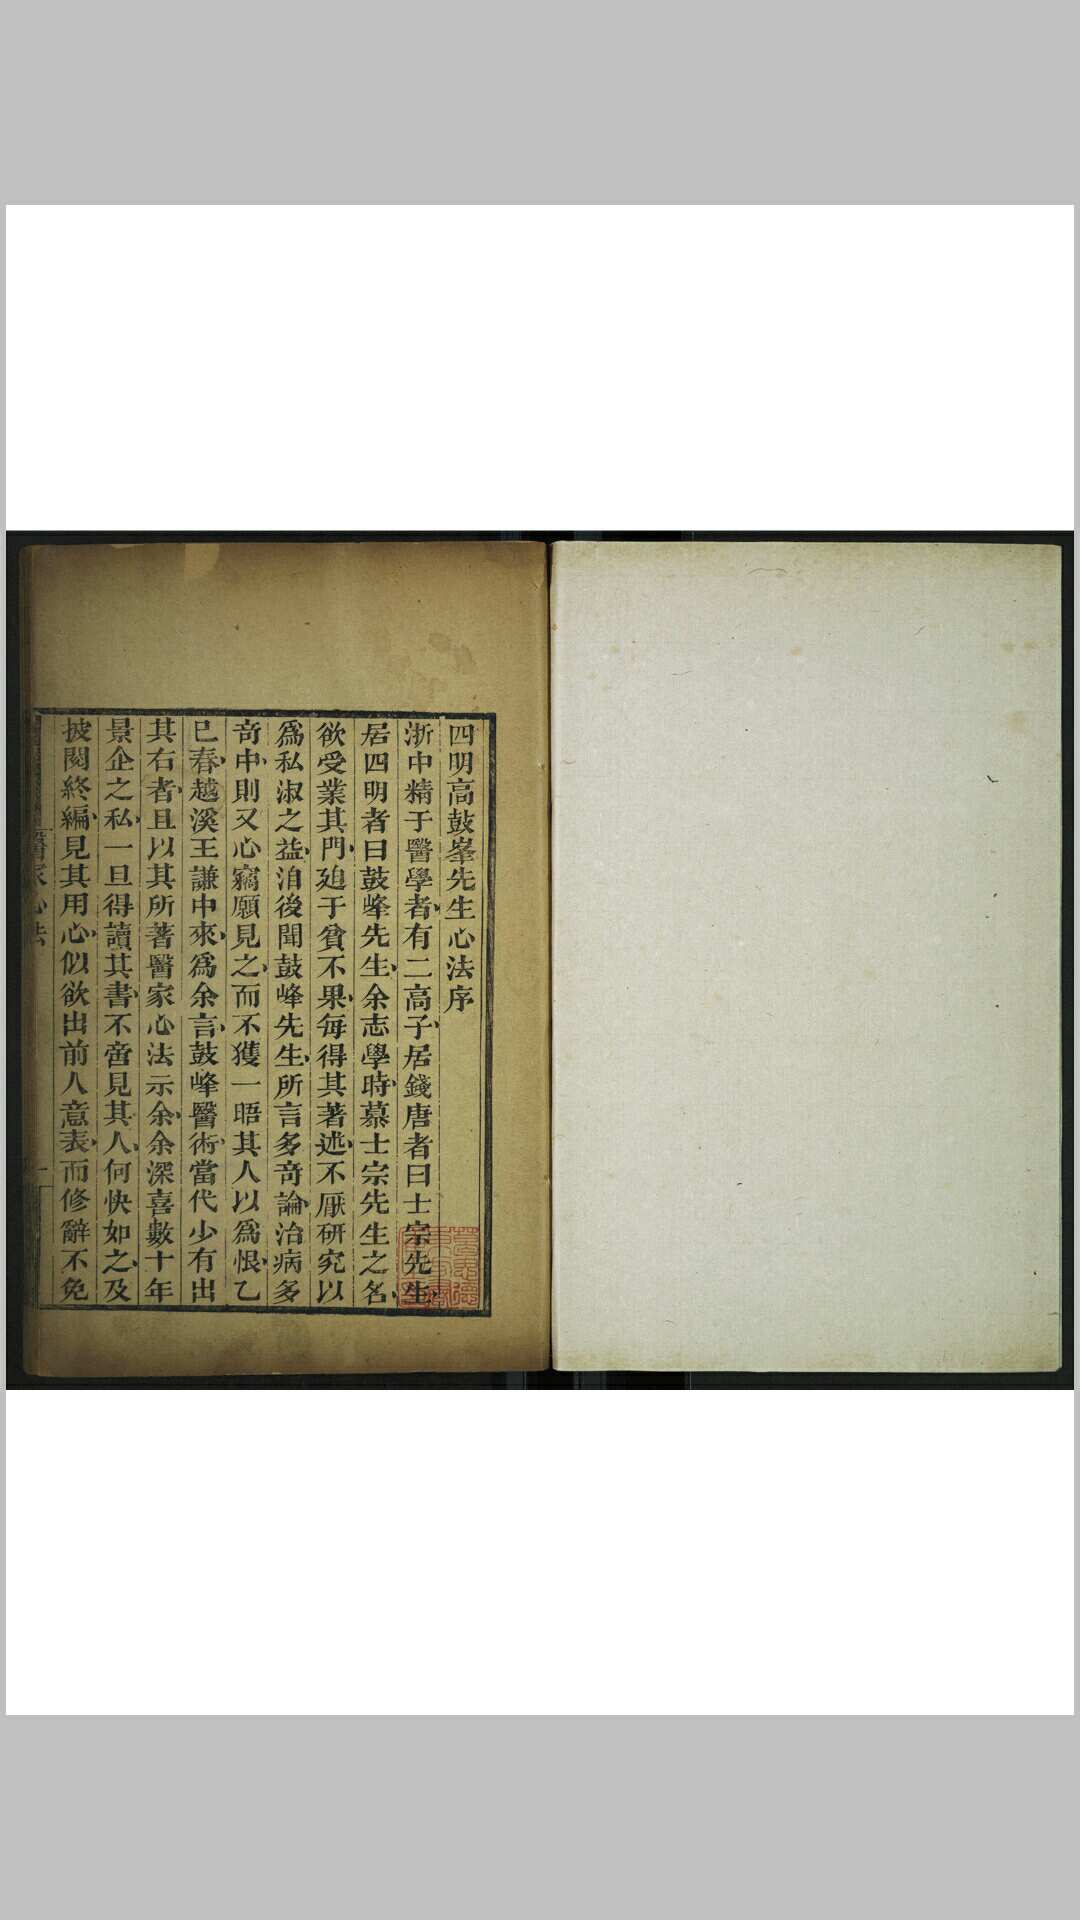 四明高鼓峯先生心法序
浙中精于醫學者有二高子居錢唐者曰士宗先生
居四明者曰鼓峰先生余志學時慕士宗先生之名
欲受業其門廹于貧不果每得其著述不厭研究以
爲私淑之益洎後聞鼓峰先生所言多竒論治病多
竒中則又心竊願見之而不獲一晤其人以爲恨乙
巳春越溪王謙中來爲余言鼓峰醫術當代少有出
其右者且以其所著醫家心法示余余深喜數十年
景企之私一旦得讀其書不啻見其人何快如之及
披閱終編見其用心似欲出前人意表而修辭不免
醫家心法